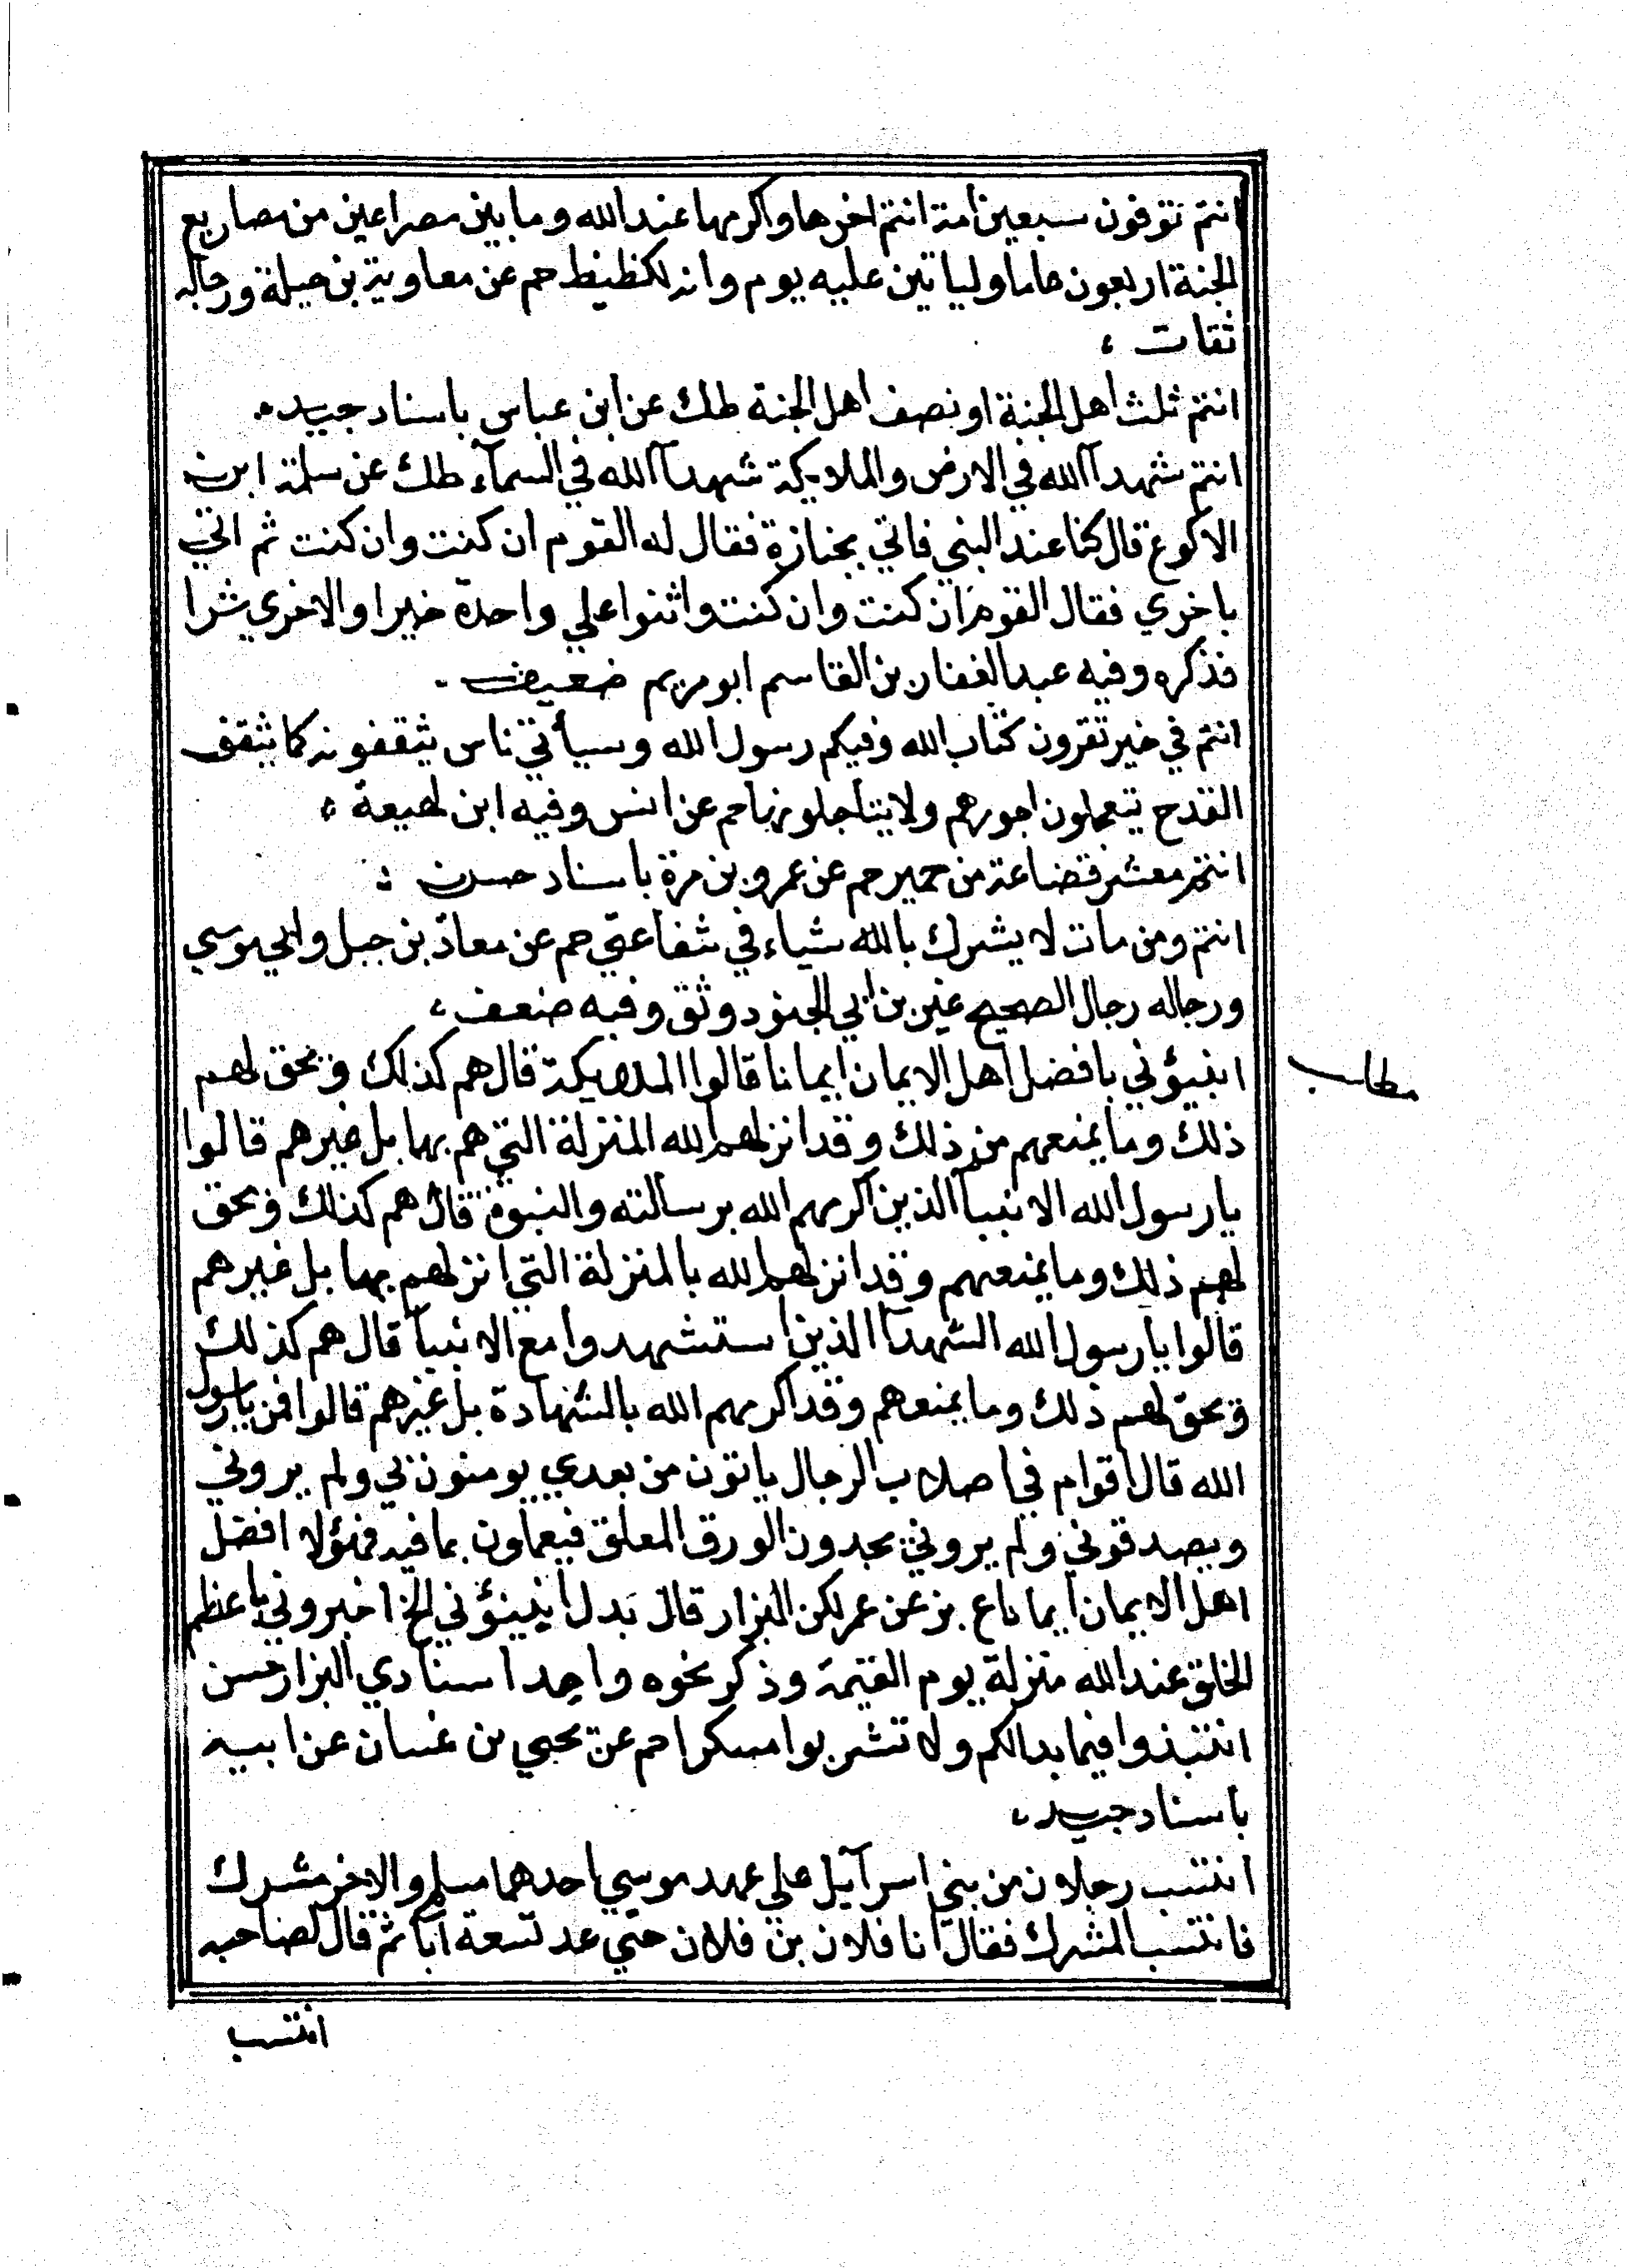 انتم توفون سبعين امة انتم اخرها واكرمها عند الله وما بين مصراعين من مصاريع
الجنة اربعون عاما ولياتين عليه يوم وانه لكظيظ حم عن معاوية بن حيدة ورجاله
ثقات ،
انتم ثلث اهل الجنة او نصف اهل الجنة طك عن ابن عباس باسناد جيد ه
انتم شهدآ الله في الارض والملايكة شهدآ الله في السمآء طك عن سلمة ابن
الاكوع قال كنا عند النبي فاتي بجنازة فقال له القوم ان كنت وان كنت ثم اتي
باخري فقال القوم ان كنت وان كنت واثنوا علي واحدة خيرا والاخري شرا
فذكره وفيه عبد الغفار بن القاسم ابو مريم ضعيف .
انتم في خير تقرون كتاب الله وفيكم رسول الله وسيأتي ناس يثقفونه كما يثقف
القدح يتعجلون اجورهم ولا يتاجلونها حم عن انس وفيه ابن لهيعة ،
انتم معشر قضاعة من حمير حم عن عمرو بن مرة باسناد حسن :
انتم ومن مات لا يشرك بالله شياء في شفاعتي حم عن معاذ بن جبل وابي موسي
ورجاله رجال الصحيح غير بن ابي الجنود وثق وفيه ضعف ،
انبيؤني بافضل اهل الايمان ايمانا قالوا الملايكة قال هم كذلك ويحق لهم
ذلك وما يمنعهم من ذلك وقد انزلهم الله المنزلة التي هم بها بل غيرهم قالوا
يا رسول الله الانبيآ الذين اكرمهم الله برسالته والنبوة قال هم كذلك ويحق
لهم ذلك وما يمنعهم وقد انزلهم الله بالمنزلة التي انزلهم بها بل غيرهم
قالوا يا رسول الله الشهدآ الذين استشهدوا مع الانبيآ قال هم كذلك
ويحق لهم ذلك وما يمنعهم وقد اكرمهم الله بالشهادة بل غيرهم قالوا فمن يارسول
الله قال اقوام في اصلاب الرجال ياتون من بعدي يومنون بي ولم يروني
ويصدقوني ولم يروني يجدون الورق المعلق فيعملون بما فيه فهؤلا افضل
اهل الايمان ايمانا ع بز عن عمر لكن البزار قال بدل انبيؤني الخ اخبروني باعظم
الخلق عند الله منزلة يوم القيمة وذكر نحوه واحد اسنادي البزار حسن
انتبذوا فيما بدالكم ولا تشربوا مسكرا حم عن يحيي بن غسان عن ابيه
باسناد جيد ،
انتسب رجلان من بني اسرآيل علي عهد موسي احدهما مسلم والاخر مشرك
فانتسب المشرك فقال انا فلان بن فلان حتي عد تسعة آبآ ثم قال لصاحبه
انتسب
مطلب